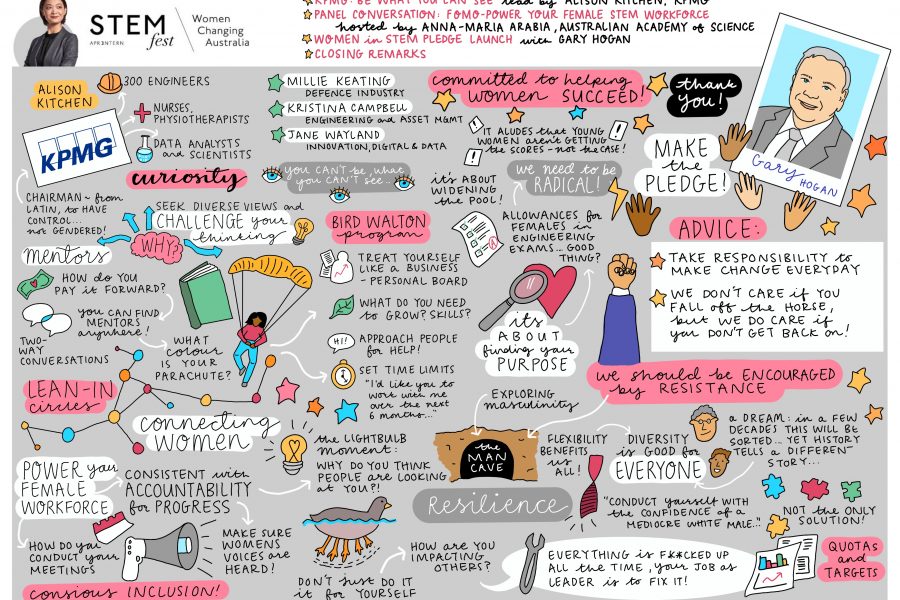 STEM
APR3NTERN
fest
Women
Changing
Australia
KPMG: BE WHAT YOU CAN SEE lead by ALISON KITCHEN, KPMG
PANEL CONVERSATION: FOMO-POWER YOUR FEMALE STEM WORKFORCE
hosted by ANNA-MARIA ARABIA, AUSTRALIAN ACADEMY OF SCIENCE
WOMEN in STEM PLEDGE LAUNCH with GARY HOGAN
CLOSING REMARKS
ALISON
KITCHEN
300 ENGINEERS
NURSES,
PHYSIOTHERAPISTS
DATA ANALYSTS
and SCIENTISTS
KPMG
curiosity
CHAIRMAN - from
LATIN, to HAVE
CONTROL...
not GENDERED!
SEEK DIVERSE VIEWS and
CHALLENGE your
thinking
WHY
MILLIE KEATING
DEFENCE INDUSTRY
KRISTINA CAMPBELL
ENGINEERING and ASSET MGMT
JANE WAYLAND
INNOVATION, DIGITAL & DATA
you CAN'T be, what
you CAN'T see...
committed to helping
women SUCCEED!
IT ALUDES that YOUNG
WOMEN aren't GETTING
the SCORES - not the CASE!
it's ABOUT
WIDENING
the POOL!
we need to be
RADICAL!
ALLOWANCES for
FEMALES in
ENGINEERING
EXAMS... GOOD
THING?
thank
you!
MAKE
the
PLEDGE!
Gary
HOGAN
ADVICE:
TAKE RESPONSIBILITY to
MAKE CHANGE EVERYDAY
WE DON'T CARE if YOU
FALL off the HORSE,
but WE DO CARE if
you DON'T GET BACK on!
mentors
HOW do YOU
PAY it FORWARD?
you CAN FIND
MENTORS
anywhere!
TWO-
WAY
CONVERSATIONS
WHAT
colour
IS YOUR
PARACHUTE?
BIRD WALTON
program
TREAT YOURSELF
LIKE A BUSINESS
- PERSONAL BOARD
WHAT DO YOU NEED
to GROW? SKILLS?
HI!
APPROACH PEOPLE
for HELP!
SET TIME LIMITS
"I'd like you to
work with me
over the next
6 months..."
A
it's
ABOUT
finding your
PURPOSE
LEAN-IN
circles
connecting
WOMEN
we should be ENCOURAGED
by RESISTANCE
EXPLORING
masculinity
the
MAN
CAVE
FLEXIBILITY
BENEFITS
us ALL!
DIVERSITY
is GOOD for
EVERYONE
a DREAM: in a FEW
DECADES THIS WILL BE
SORTED... YET HISTORY
TELLS a DIFFERENT
STORY...
the LIGHTBULB
moment:
WHY DO YOU THINK
PEOPLE are LOOKING
AT YOU?!
POWER your
FEMALE
WORKFORCE
CONSISTENT with
ACCOUNTABILITY
for PROGRESS
HOW DO you
CONDUCT your
MEETINGS
MAKE SURE
WOMENS
VOICES are
HEARD!
conscious INCLUSION!
DON'T just DO IT
it for YOURSELF
HOW are YOU
IMPACTING
OTHERS?
Resilience
"CONDUCT yourself WITH
the CONFIDENCE of a
MEDIOCRE WHITE MALE..."
NOT the ONLY
SOLUTION!
EVERYTHING is F*#CKED UP
ALL the TIME, your JOB as
LEADER is to FIX IT!
QUOTAS
and
TARGETS